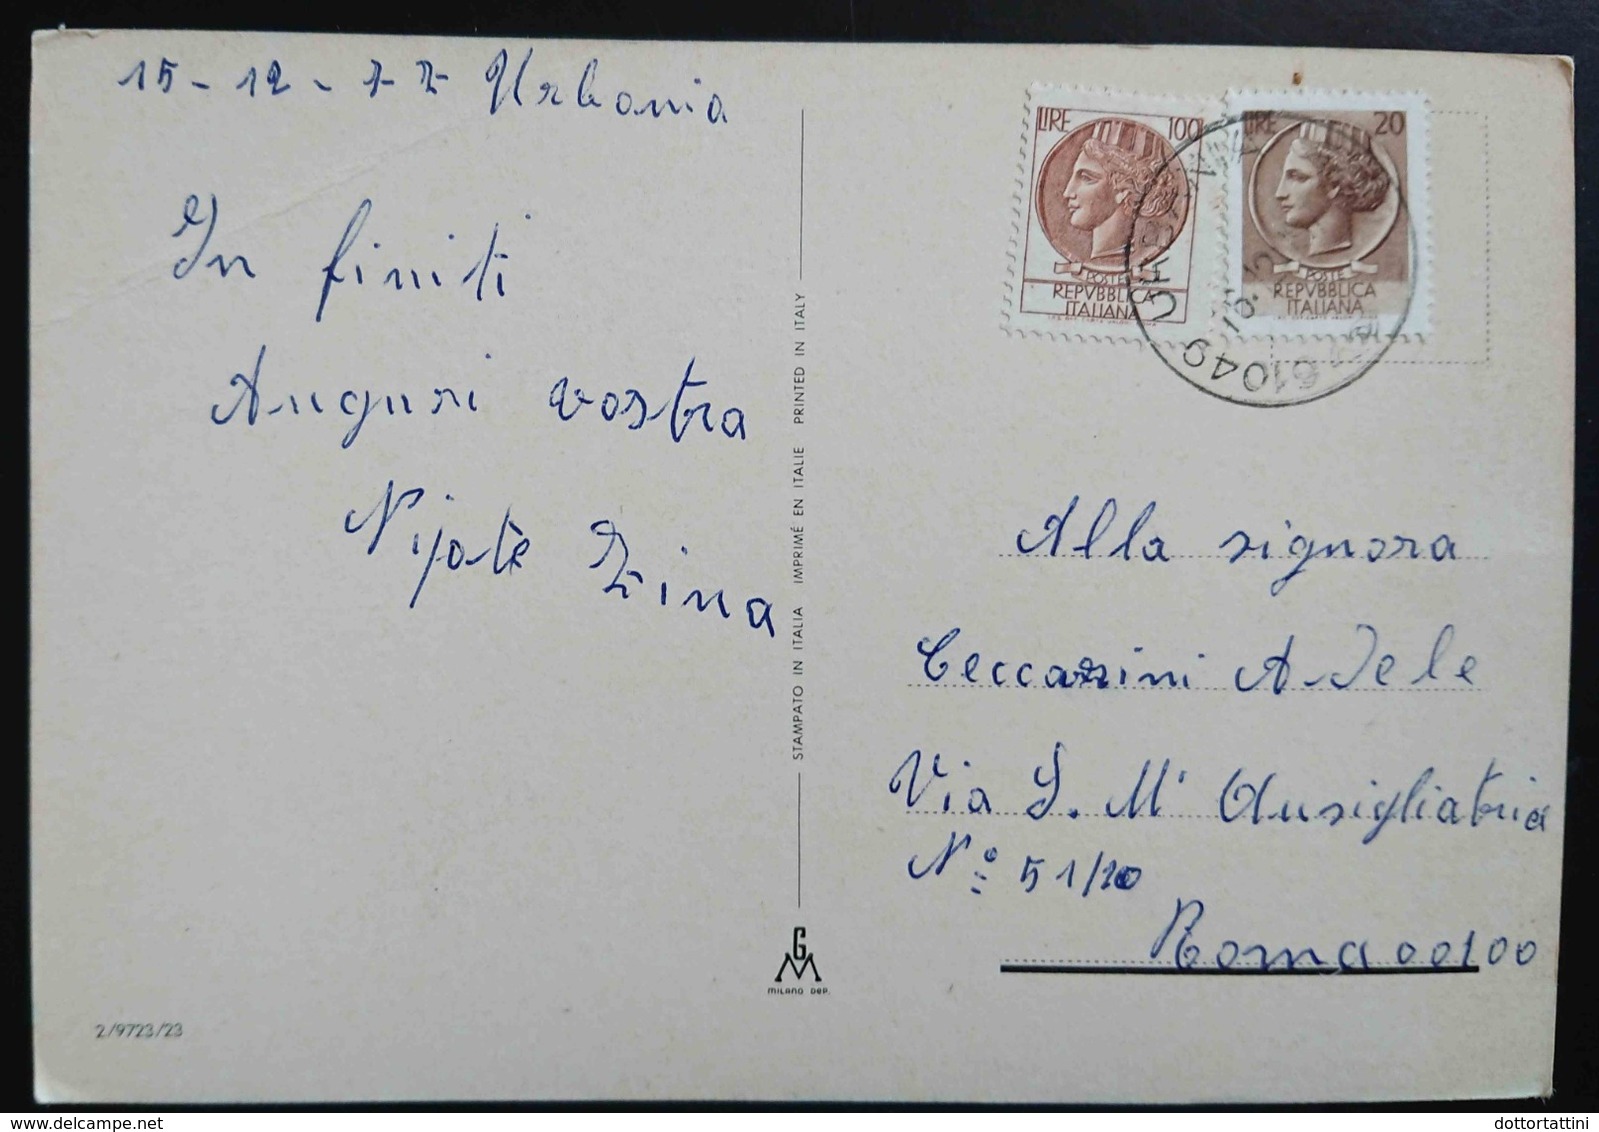 15-12-77 Urbania
In finiti
Auguri vostra
Nipote Zina
2/9723/23
STAMPATO IN ITALIA IMPRIMÉ EN ITALIE PRINTED IN ITALY
GM
MILANO DEP.
LIRE 100
POSTE
REPVBBLICA
ITALIANA
LIRE 20
POSTE
REPVBBLICA
ITALIANA
61049 URBANIA
Alla signora
Ceccarini Adele
Via S. M. Ausigliatria
N° 51/20
Roma 00100
dottortattini